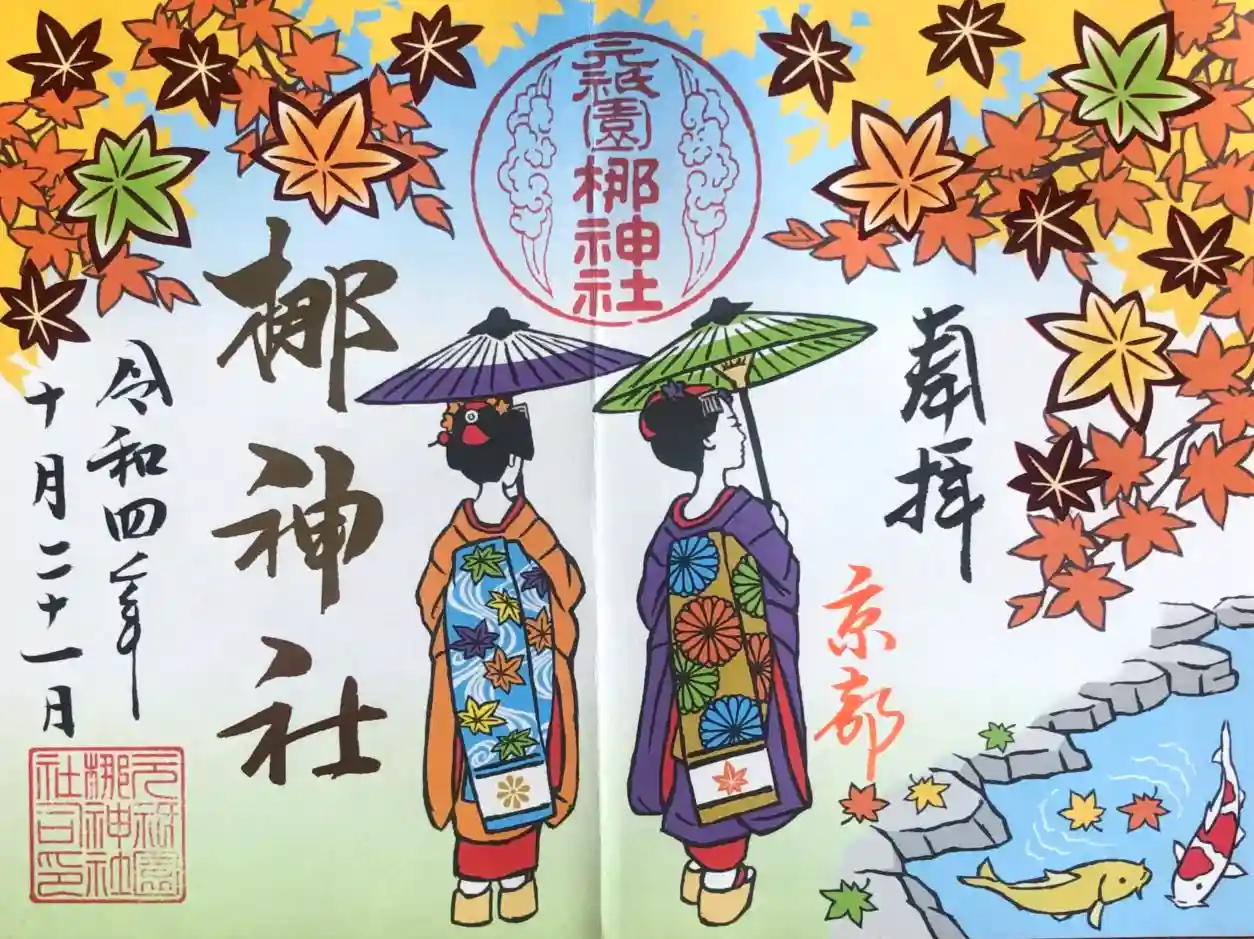 奉拝
京都
元祇園梛神社
梛神社
令和四年
十月二十一月
元祇園
梛神社
社司印